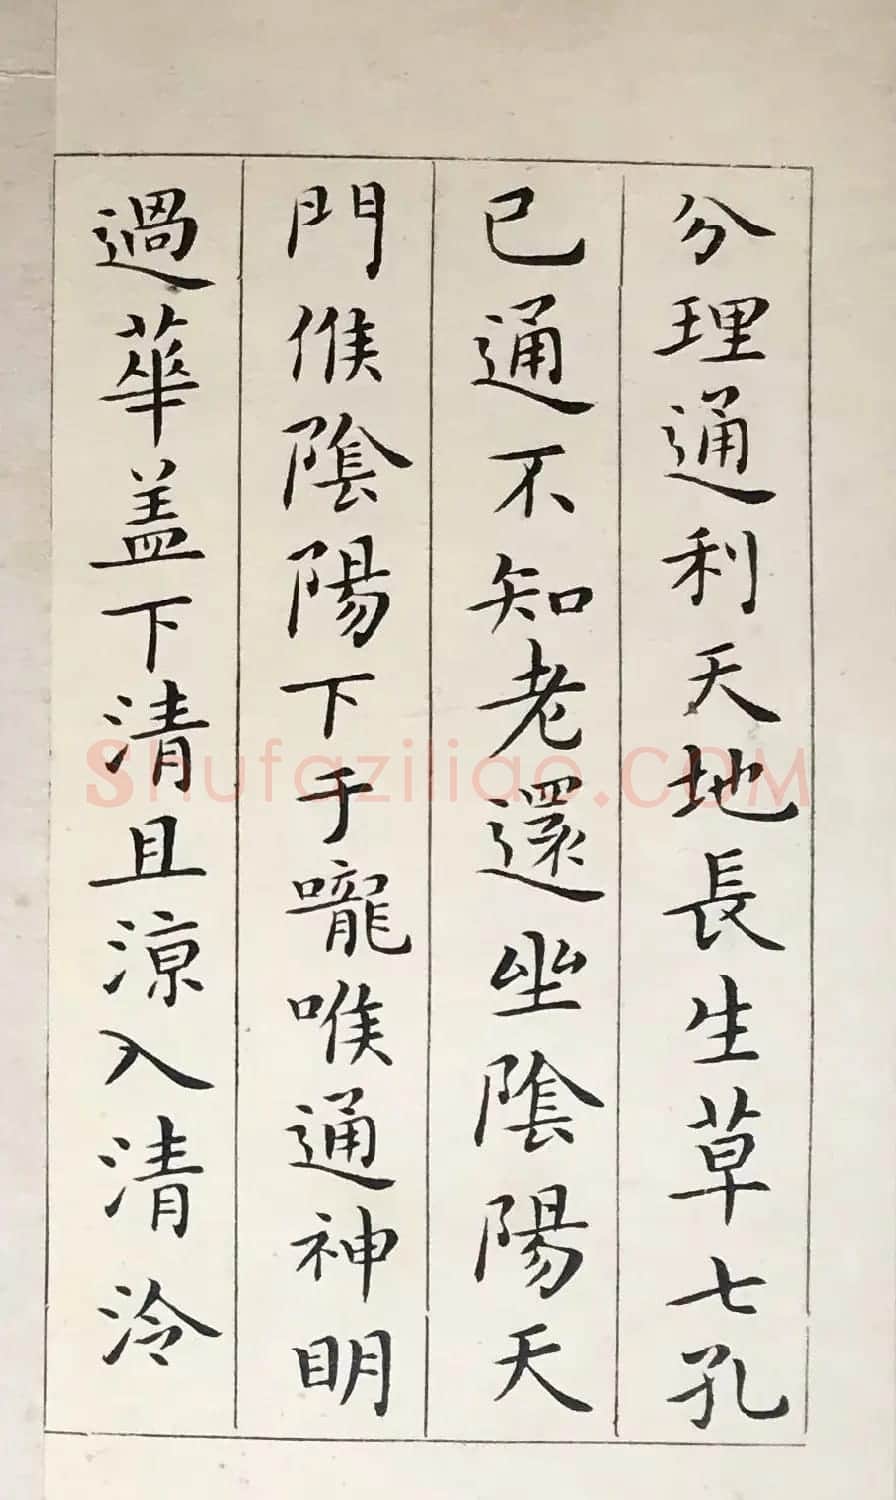 分理通利天地長生草七孔
已通不知老還坐陰陽天
門候陰陽下于嚨喉通神明
過華盖下清且涼入清泠
Shufaziliao.COM